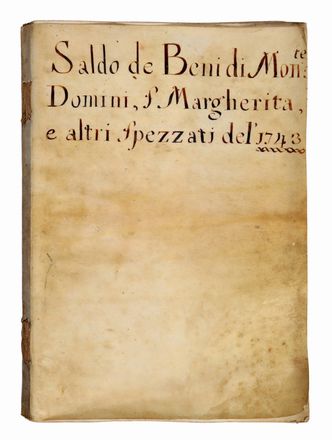 Saldo de Beni di Mon:te
Domini, S. Margherita,
e altri Spezzati del'1743